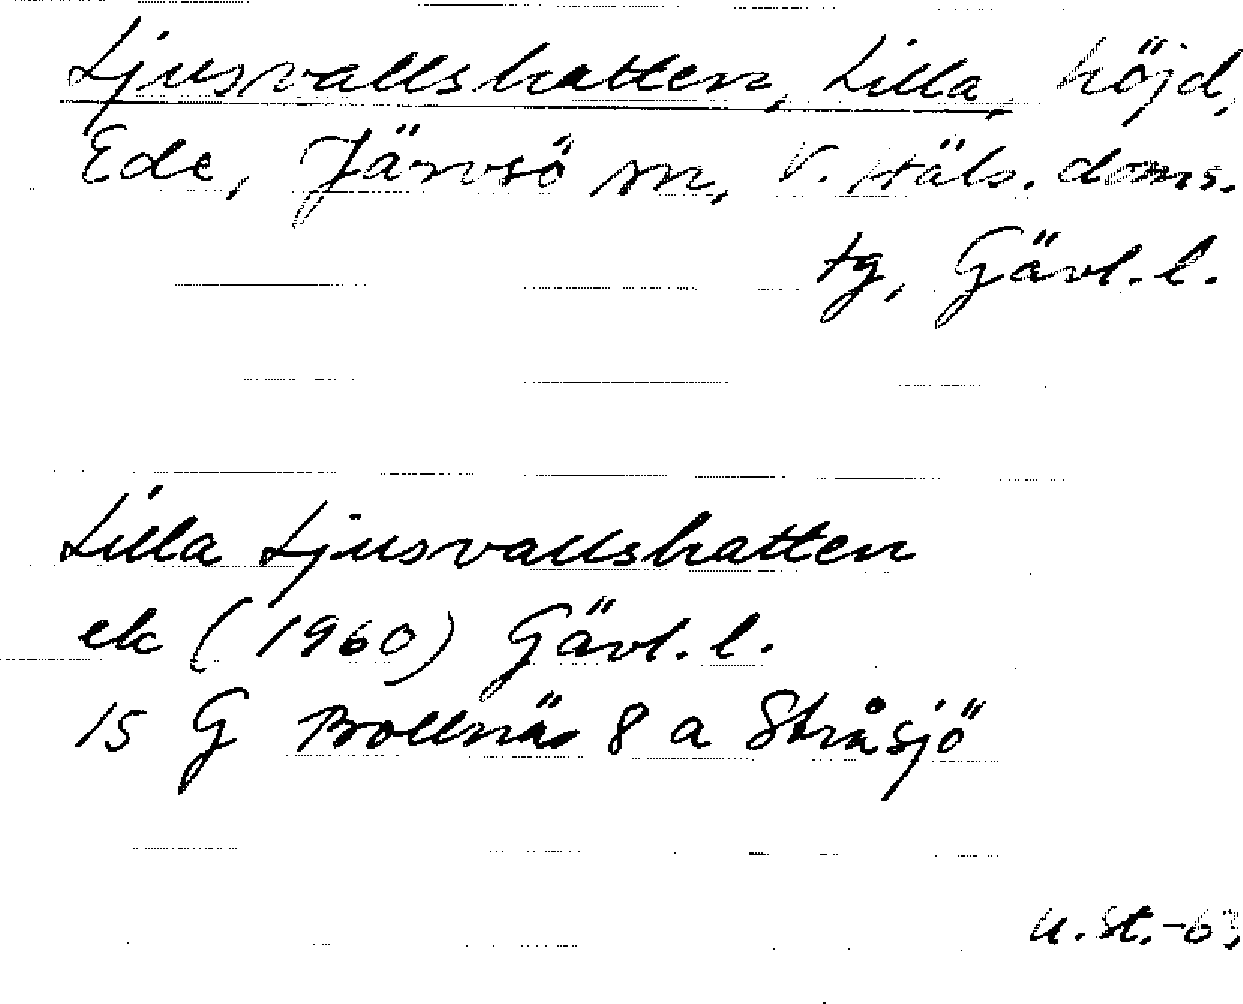 Ljusvallshatten, Lilla, höjd,
Ede, Järvsö sn, V. Häls. doms.
tg, Gävl. l.
Lilla Ljusvallshatten
ek (1960) Gävl. l.
15 G Bollnäs 8 a Stråsjö
U. St. -63